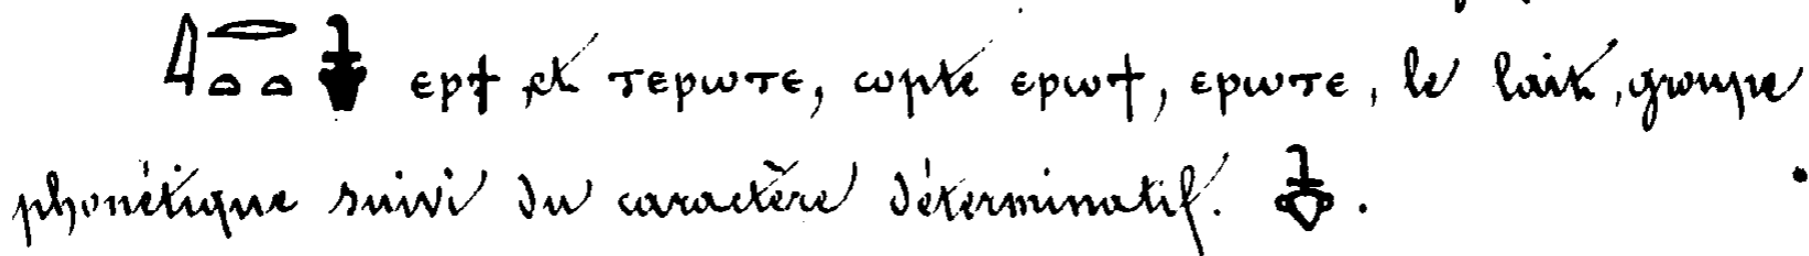 𓇋𓂋𓏏𓏏𓏊 ⲉⲣϯ et ⲧⲉⲣⲱⲧⲉ, copte ⲉⲣⲱϯ, ⲉⲣⲱⲧⲉ, le lait, groupe
phonétique suivi du caractère déterminatif. 𓏊.